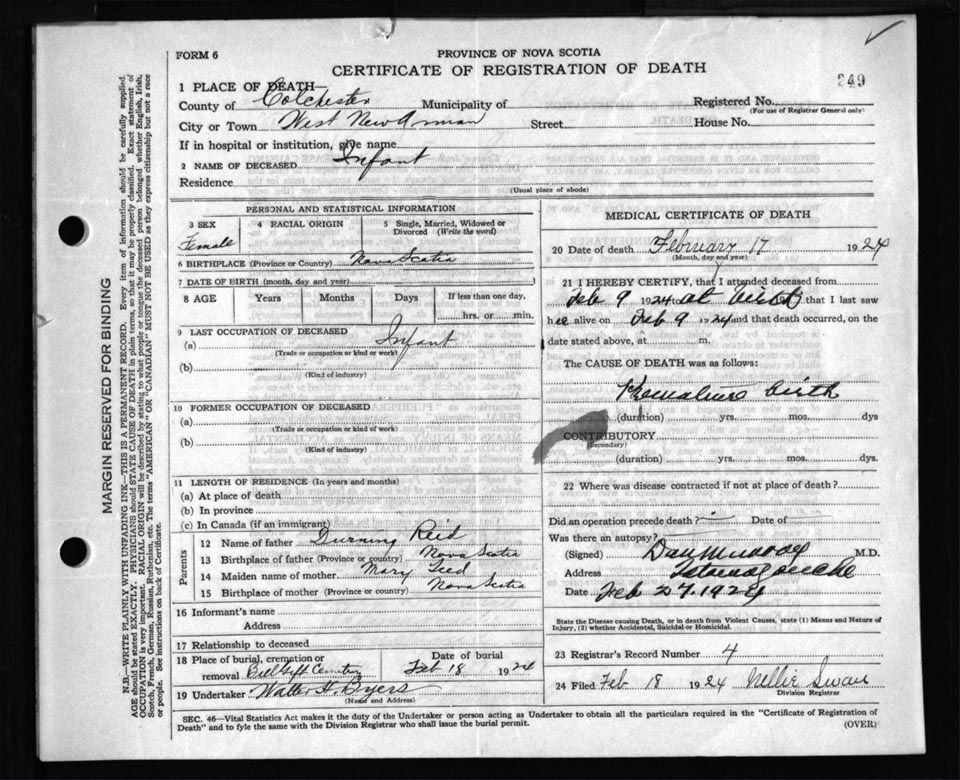 FORM 6
PROVINCE OF NOVA SCOTIA
CERTIFICATE OF REGISTRATION OF DEATH
249
1 PLACE OF DEATH—
County of Colchester Municipality of
Registered No.
(For use of Registrar General only)
City or Town West New Annan Street House No.
If in hospital or institution, give name
2 NAME OF DECEASED Infant
Residence
(Usual place of abode)
PERSONAL AND STATISTICAL INFORMATION
3 SEX Female
4 RACIAL ORIGIN
5 Single, Married, Widowed or Divorced (Write the word)
6 BIRTHPLACE (Province or Country) Nova Scotia
7 DATE OF BIRTH (month, day and year)
8 AGE Years Months Days If less than one day,
hrs. or min.
9 LAST OCCUPATION OF DECEASED
(a) Infant
(Trade or occupation or kind or work)
(b)
(Kind of industry)
10 FORMER OCCUPATION OF DECEASED
(a)
(Trade or occupation or kind of work)
(b)
(Kind of industry)
11 LENGTH OF RESIDENCE (In years and months)
(a) At place of death
(b) In province
(c) In Canada (if an immigrant)
Parents
12 Name of father Reid
13 Birthplace of father (Province or country) Nova Scotia
14 Maiden name of mother Mary
15 Birthplace of mother (Province or country) Nova Scotia
16 Informant's name
Address
17 Relationship to deceased
18 Place of burial, cremation or removal Cemetery
Date of burial
Feb 18 1924
19 Undertaker Walter H. Byers
(Name and Address)
MEDICAL CERTIFICATE OF DEATH
20 Date of death February 17 1924
(Month, day and year)
21 I HEREBY CERTIFY, that I attended deceased from
Feb 9 1924 at birth that I last saw
her alive on Feb 9 1924 and that death occurred, on the
date stated above, at m.
The CAUSE OF DEATH was as follows:
Premature birth
(duration) yrs. mos. dys
CONTRIBUTORY
(Secondary)
(duration) yrs. mos. dys.
22 Where was disease contracted if not at place of death?
Did an operation precede death? Date of
Was there an autopsy?
(Signed) Dan Murray M.D.
Address Tatamagouche
Date Feb 27. 1924
State the Disease causing Death, or in death from Violent Causes, state (1) Means and Nature of
Injury, (2) whether Accidental, Suicidal or Homicidal.
23 Registrar's Record Number 4
24 Filed Feb 18 1924 Nellie Swan
Division Registrar
SEC. 46—Vital Statistics Act makes it the duty of the Undertaker or person acting as Undertaker to obtain all the particulars required in the "Certificate of Registration of
Death" and to fyle the same with the Division Registrar who shall issue the burial permit.
(OVER)
MARGIN RESERVED FOR BINDING
N.B.—WRITE PLAINLY WITH UNFADING INK—THIS IS A PERMANENT RECORD. Every item of information should be carefully supplied.
AGE should be stated EXACTLY. PHYSICIANS should STATE CAUSE OF DEATH in plain terms, so that it may be properly classified. Exact statement of
OCCUPATION is very important. RACIAL ORIGIN will be described by stating to what people or tongue the deceased person belonged whether English, Irish,
Scotch, French, German, Russian, Ruthenian, etc. The terms "AMERICAN" OR "CANADIAN" MUST NOT BE USED as they express citizenship but not a race
or people. See instructions on back of Certificate.